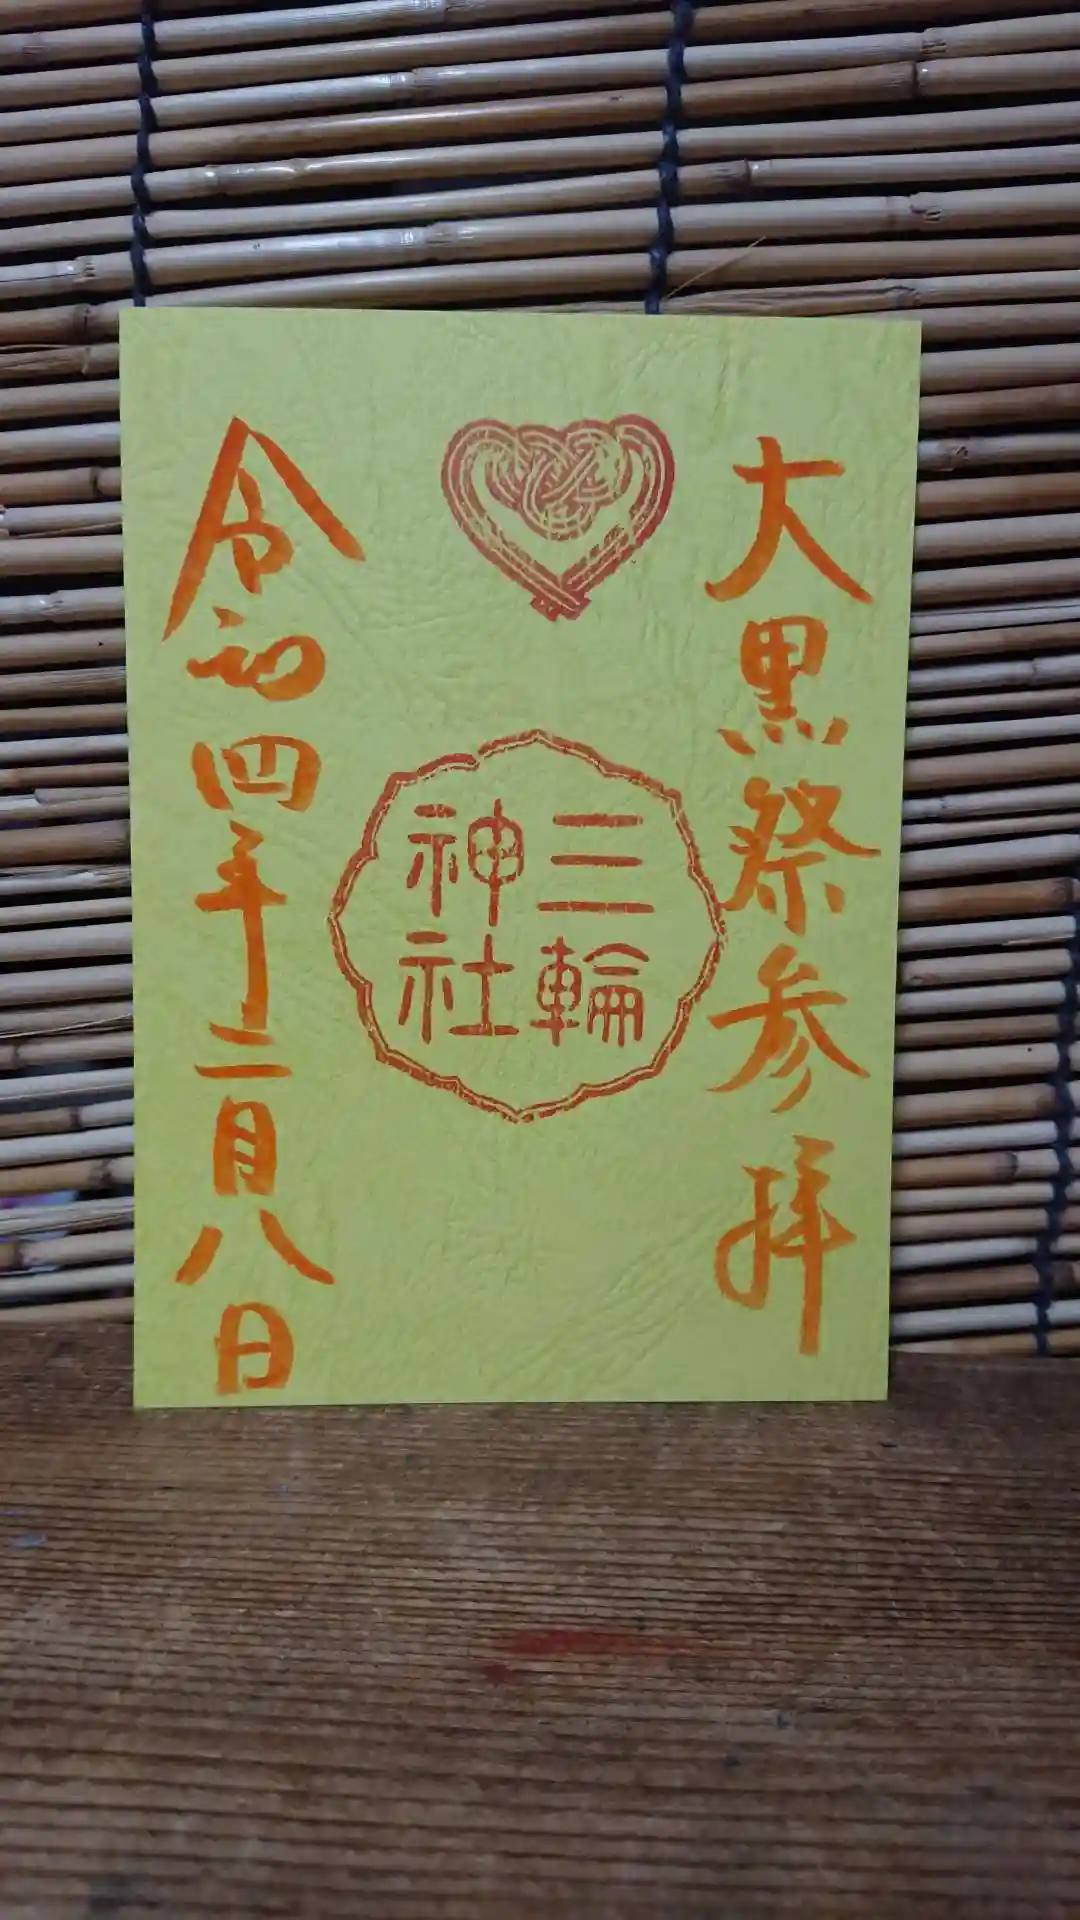 大黒祭参拝
三輪
神社
令和四年二月八日